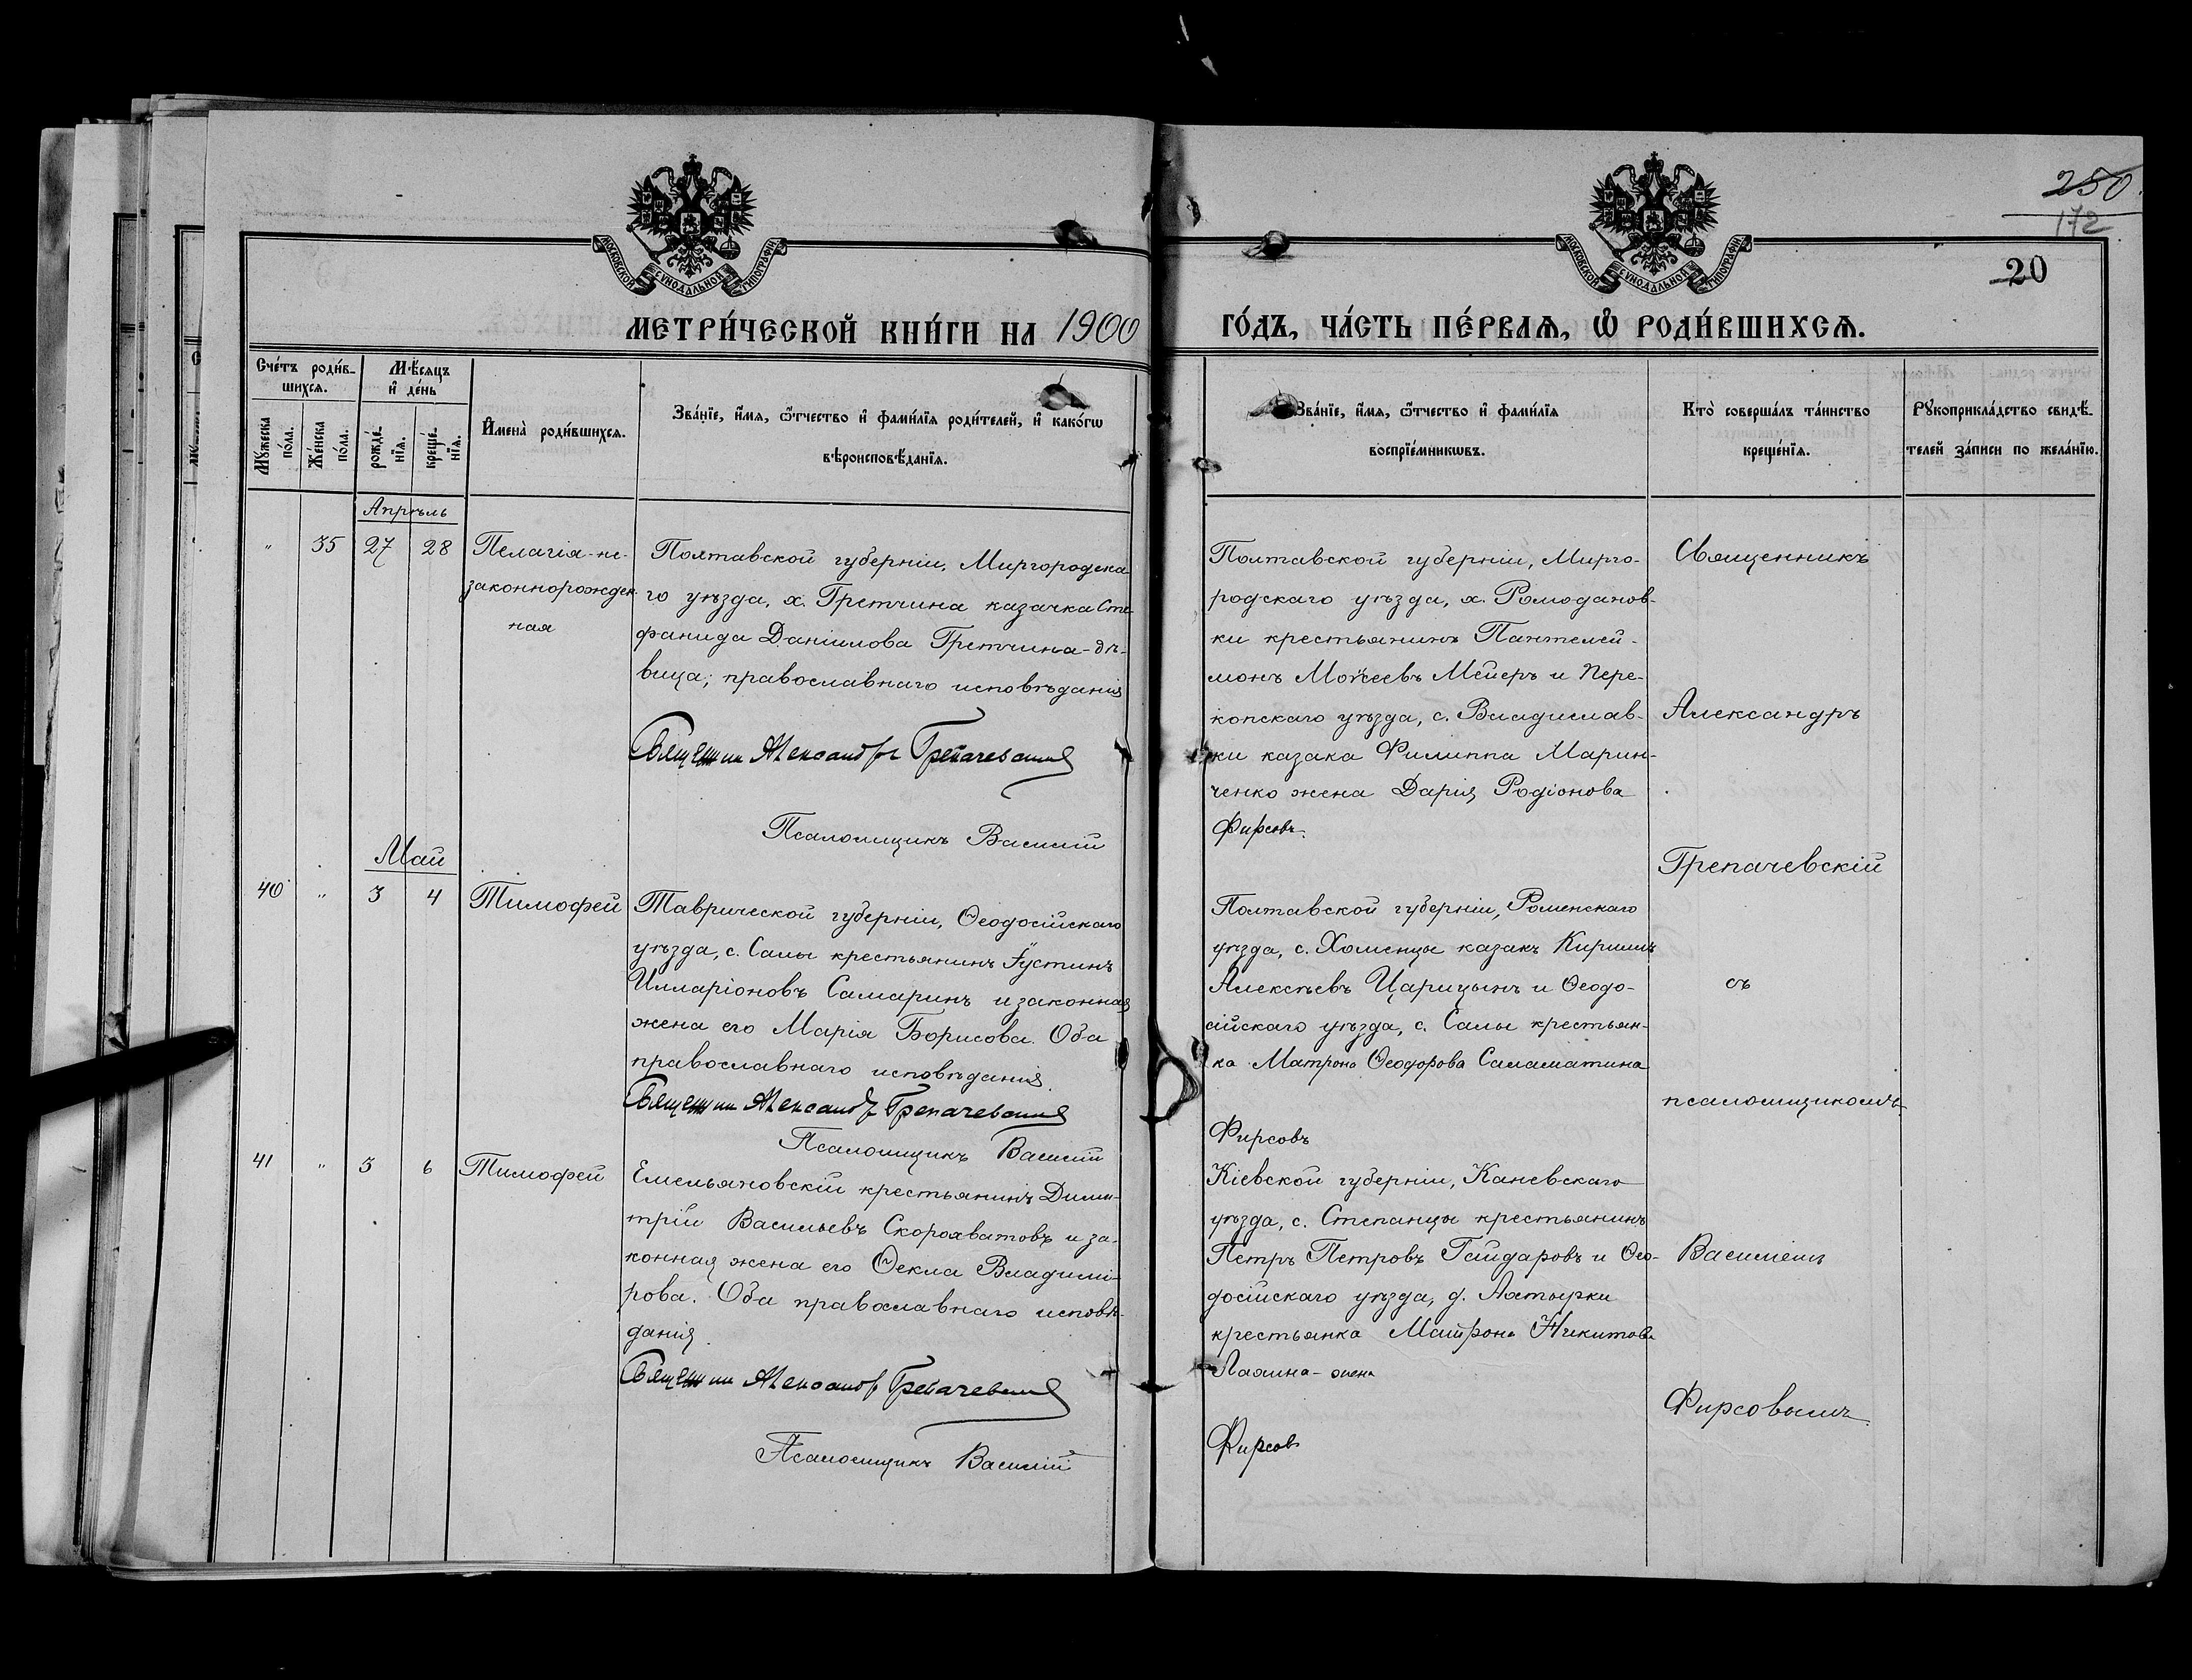 250
172
20
МОСКОВСКОЙ СѴНОДАЛЬНОЙ ТИПОГРАФІИ
МОСКОВСКОЙ СѴНОДАЛЬНОЙ ТИПОГРАФІИ
МЕТРИ́ЧЕСКОЙ КНИ́ГИ НА 1900 ГО́ДЪ, ЧА́СТЬ ПЕ́РВАѦ, Ѡ РОДИ́ВШИХСѦ.
Сче́тъ роди́в-
шихсѧ.
Мѣ́сяцъ
и҆ де́нь
Мꙋ́жеска
по́ла.
Же́нска
по́ла.
рожде́-
нїѧ.
креще́-
нїѧ.
И҆мена̀ роди́вшихсѧ.
Зва́нїе, и҆́мѧ, ѻ҆́тчество и҆ фами́лїѧ роди́телей, и҆ како́гѡ
вѣроисповѣ́данїѧ.
Зва́нїе, и҆́мѧ, ѻ҆́тчество и҆ фами́лїѧ
воспрїе́мникѡвъ.
Кто̀ соверша́лъ та́инство
креще́нїѧ.
Рꙋкоприкла́дство свидѣ́-
телей за́писи по жела́нїю.
Апрѣль
" 35 27 28
Пелагія-не-
законнорожден-
ная
Полтавской губерніи, Миргородска-
го уѣзда, х. Гретчина казачка Сте-
фанида Даніилова Гретчина-дѣ-
вица; православнаго исповѣданія
Священник Александръ Грепачевский
Псаломщикъ Василій
Полтавской губерніи, Мирго-
родскаго уѣзда, х. Ромоданов-
ки крестьянинъ Пантелей-
монъ Моѵсеевъ Мейеръ и Пере-
копскаго уѣзда, с. Владислав-
ки казака Филиппа Марин-
ченко жена Дарія Родіонова
Фирсовъ.
Священникъ
Александръ
Грепачевскій
съ
псаломщикомъ
Василіемъ
Фирсовымъ.
Май
40 " 3 4
Тимофей
Таврической губерніи, Ѳеодосійскаго
уѣзда, с. Салы крестьянинъ Іустинъ
Илларіоновъ Самаринъ и законная
жена его Марія Борисова. Оба
православнаго исповѣданія.
Священник Александр Грепачевский
Псаломщикъ Василій
Полтавской губерніи, Роменскаго
уѣзда, с. Хоменцы казакъ Кириллъ
Алексѣевъ Царицынъ и Ѳеодо-
сійскаго уѣзда, с. Салы крестьян-
ка Матрона Ѳеодорова Саламатина
Фирсовъ
41 " 3 6
Тимофей
Емельяновскій крестьянинъ Дими-
трій Васильевъ Скорохватовъ и за-
конная жена его Ѳекла Владимі-
рова. Оба православнаго исповѣ-
данія.
Священник Александр Грепачевский
Псаломщикъ Василій
Кіевской губерніи, Каневскаго
уѣзда, с. Степанцы крестьянинъ
Петръ Петровъ Гайдаровъ и Ѳео-
досійскаго уѣзда, д. Ахтырки
крестьянка Матрона Никитова
Фирсов